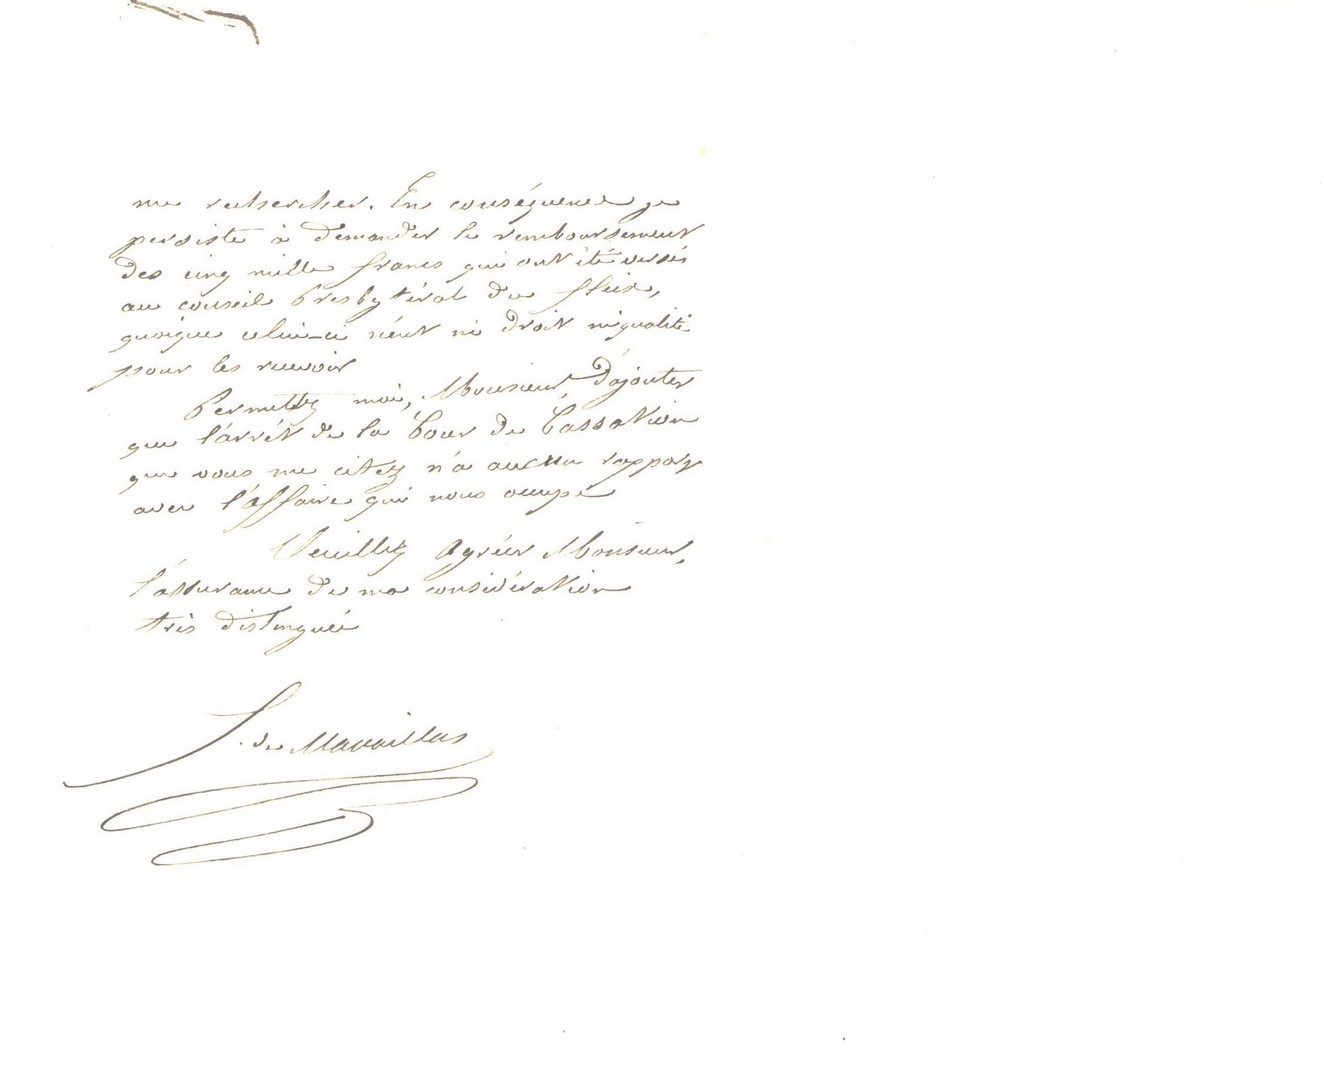 me rechercher. En conséquence je
persiste à demander le remboursement
des cinq mille francs qui ont été versés
au conseil Presbytéral du fleix,
quoique celui-ci n'eut ni droit ni qualité
pour les recevoir
Permettez moi, Monsieur, d'ajouter
que l'arrêt de la Cour de Cassation
que vous me citez n'a aucun rapport
avec l'affaire qui nous occupe
Veuillez Agréer Monsieur,
l'assurance de ma considération
très distinguée
de